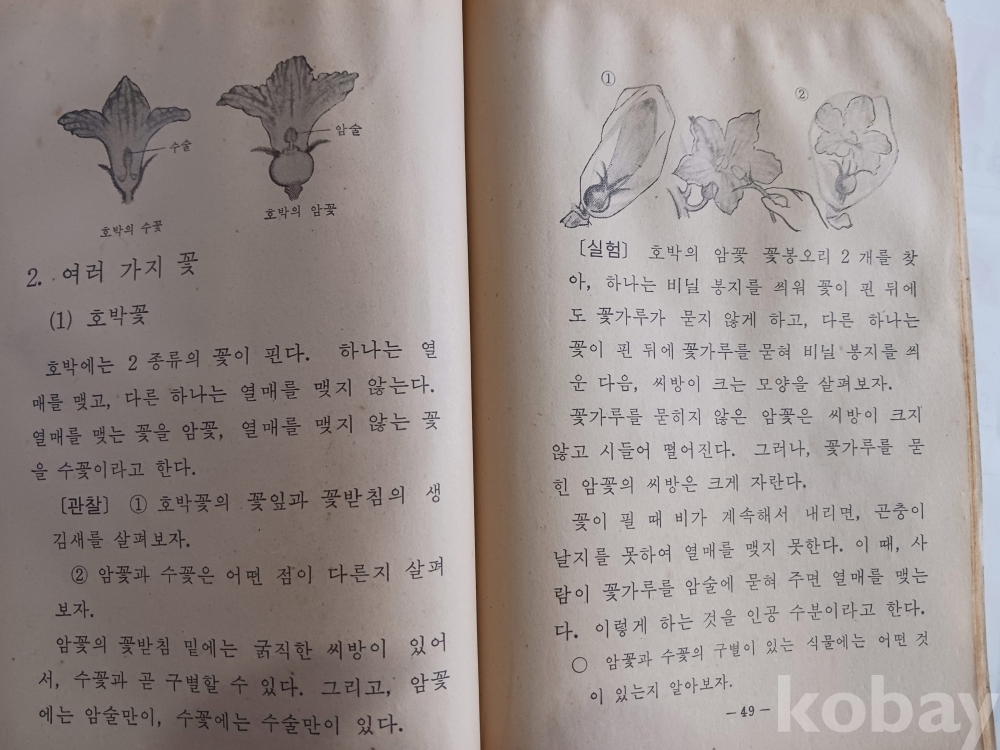 수술
호박의 수꽃
암술
호박의 암꽃
2. 여러 가지 꽃
(1) 호박꽃
호박에는 2 종류의 꽃이 핀다. 하나는 열
매를 맺고, 다른 하나는 열매를 맺지 않는다.
열매를 맺는 꽃을 암꽃, 열매를 맺지 않는 꽃
을 수꽃이라고 한다.
[관찰] ① 호박꽃의 꽃잎과 꽃받침의 생
김새를 살펴보자.
② 암꽃과 수꽃은 어떤 점이 다른지 살펴
보자.
암꽃의 꽃받침 밑에는 굵직한 씨방이 있어
서, 수꽃과 곧 구별할 수 있다. 그리고, 암꽃
에는 암술만이, 수꽃에는 수술만이 있다.
①
②
[실험] 호박의 암꽃 꽃봉오리 2 개를 찾
아, 하나는 비닐 봉지를 씌워 꽃이 핀 뒤에
도 꽃가루가 묻지 않게 하고, 다른 하나는
꽃이 핀 뒤에 꽃가루를 묻혀 비닐 봉지를 씌
운 다음, 씨방이 크는 모양을 살펴보자.
꽃가루를 묻히지 않은 암꽃은 씨방이 크지
않고 시들어 떨어진다. 그러나, 꽃가루를 묻
힌 암꽃의 씨방은 크게 자란다.
꽃이 필 때 비가 계속해서 내리면, 곤충이
날지를 못하여 열매를 맺지 못한다. 이 때, 사
람이 꽃가루를 암술에 묻혀 주면 열매를 맺는
다. 이렇게 하는 것을 인공 수분이라고 한다.
○ 암꽃과 수꽃의 구별이 있는 식물에는 어떤 것
이 있는지 알아보자.
－49－
kobay